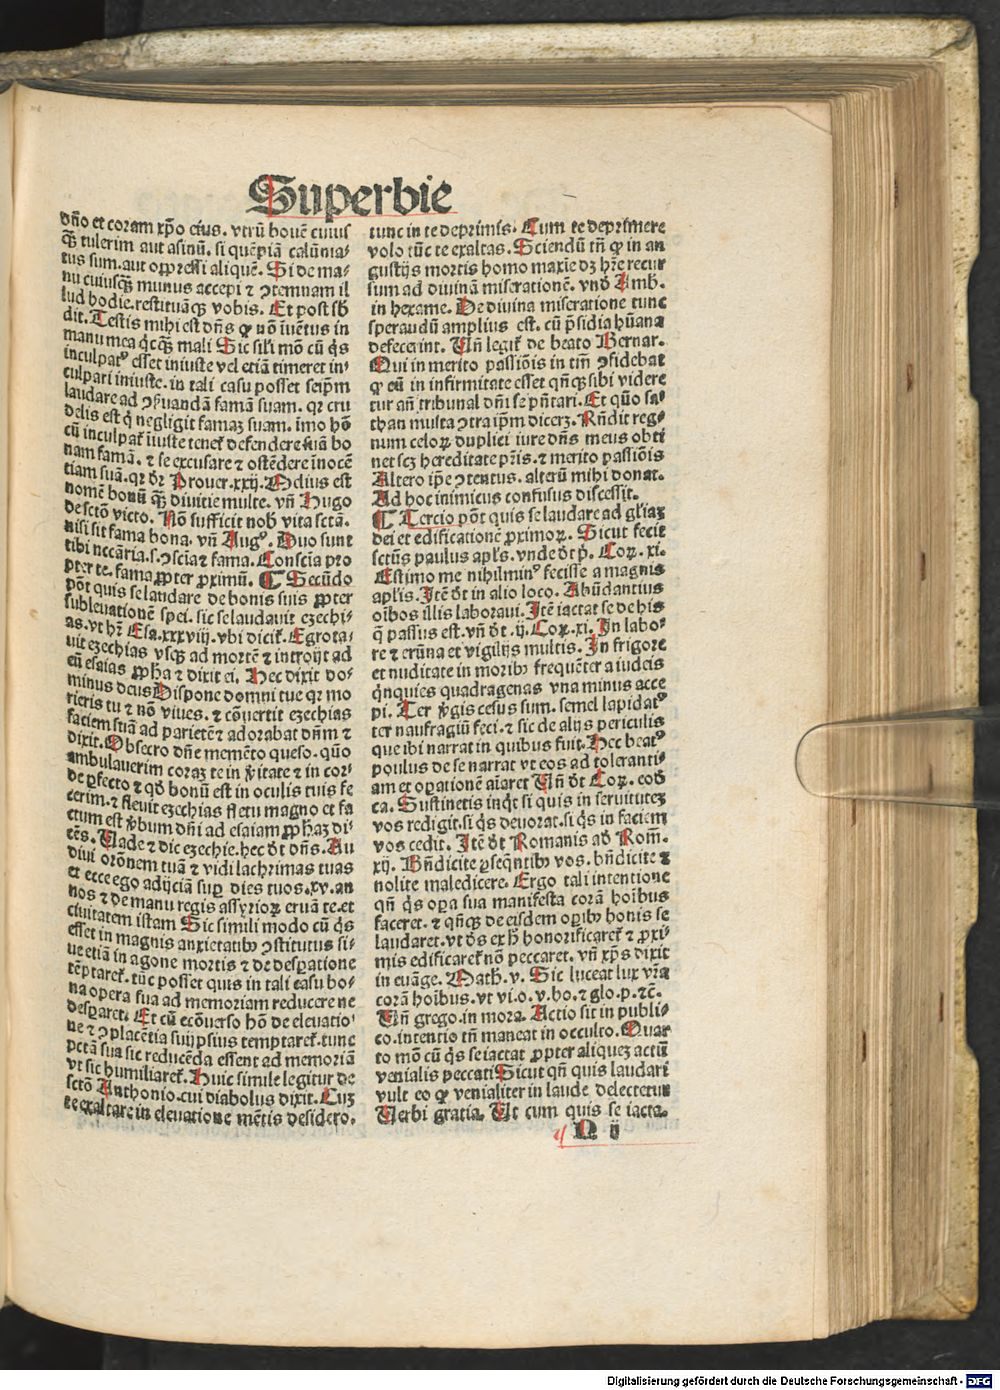 Superbie
dño et coram xp̃o eius. vtrũ bouẽ cuius
qꝫ tulerim aut asinũ. si quẽpiã calũnia-
tus sum. aut oppressi aliquẽ. Si de ma-
nu cuiusqꝫ munus accepi ⁊ ꝯtemnam il
lud hodie. restituãqꝫ vobis. Et post sb̃
dit. Testis mihi est dñs qꝛ nõ inuẽtus in
manu mea qͥcqꝫ mali Sic sil'i mõ cũ qͥs
inculpatꝰ esset iniuste vel etiã timeret in-
culpari iniuste. in tali casu posset seip̃m
laudare ad ꝯseruandã famã suam. qꝛ cru
delis est qͥ negligit famaꝫ suam. imo hõ
cũ inculpat̃ iniuste tenet̃ defendere suã bo
nam famã. ⁊ se excusare ⁊ ostẽdere inocẽ
tiam suã. qꝛ dr̃ Prouer. xxij. Melius est
nomẽ bonũ qꝫ diuitie multe. vñ Hugo
de sctõ victo. Nõ sufficit nob̃ vita sctã.
nisi sit fama bona. vñ Augꝰ. Duo sunt
tibi nccãria. s. ꝯsciã ⁊ fama. Consciã pro
pter te. fama ꝓpter ꝓximũ. ¶ Secũdo
põt quis se laudare de bonis suis ꝓpter
subleuationẽ spei. sic se laudauit ezechi-
as. vt hr̃ Esa. xxxviij. vbi dicit̃. Egrota-
uit ezechias vsqꝫ ad mortẽ ⁊ introijt ad
eũ esaias ꝓp̃ha ⁊ dixit ei. Hec dixit do-
minus deus Dispone domui tue qꝛ mo
rieris tu ⁊ nõ viues. ⁊ cõuertit ezechias
faciem suã ad parietẽ ⁊ adorabat dñm ⁊
dixit. Obsecro dñe memẽto queso. quõ
ambulauerim coraꝫ te in v̾itate ⁊ in cor-
de ꝑfecto ⁊ qd̃ bonũ est in oculis tuis fe
cerim. ⁊ fleuit ezechias fletu magno et fa
ctum est v̾bum dñi ad esaiam ꝓp̃haꝫ di-
cẽs. Uade ⁊ dic ezechie. hec dt̃ dñs. Au
diui orõnem tuã ⁊ vidi lachrimas tuas
et ecce ego adijciã suꝑ dies tuos. xv. an
nos ⁊ de manu regis assyrioꝝ eruã te. et
ciuitatem istam Sic simili modo cũ qͥs
esset in magnis anxietatibꝰ ꝯstitutus si-
ue etiã in agone mortis ⁊ de desꝑatione
tẽptaret̃. tũc posset quis in tali casu bo-
na opera sua ad memoriam reducere ne
desꝑaret. Et cũ ecõuerso hõ de eleuatio-
ne ⁊ ꝯplacẽtia suijpsius temptaret̃. tunc
pctã sua sic reducẽda essent ad memoriã
vt sic humiliaret̃. Huic simile legitur de
sctõ Anthonio. cui diabolus dixit. Cuꝫ
te exaltare in eleuatione mẽtis desidero.
tunc in te deprimis. Cum te deprimere
volo tũc te exaltas. Sciendũ tñ qꝛ in an
gustijs mortis homo maxie dꝫ hr̃e recur
sum ad diuinã miserationẽ. vnd̃ Amb̃.
in hexame. De diuina miseratione tunc
speraudũ amplius est. cũ p̃sidia hũana
defecerint. Uñ legit̃ de beato Bernar.
Qui in merito passiõis in tm̃ ꝯfidebat
qꝛ cũ in infirmitate esset qñqꝫ sibi videre
tur añ tribunal dñi se pñtari. Et quo sa-
than multa ꝯtra ip̃m dicerꝫ. Rñdit reg-
num celoꝝ duplici iure dñs meus obti
net scꝫ hereditate pr̃is. ⁊ merito passiõis
Altero ip̃e ꝯtentus. alterũ mihi donat.
Ad hoc inimicus confusus discessit.
¶ Tercio põt quis se laudare ad gl̃iaꝫ
dei et edificationẽ ꝓximoꝝ. Sicut fecit
sctũs paulus apl̃s. vnde dt̃ p̃. Coꝝ. xi.
Estimo me nihil minꝰ fecisse a magnis
apl̃is. Itẽ dt̃ in alio loco. Abũdantius
oĩbos illis laboraui. Itẽ iactat se de his
q̃ passus est. vñ dt̃. ij. Coꝝ. xi. In labo-
re ⁊ erũna et vigilijs multis. In frigore
et nuditate in moribꝰ frequẽter a iudeis
qͥnquies quadragenas vna minus acce
pi. Ter v̾gis cesus sum. semel lapidatꝰ
ter naufragiũ feci. ⁊ sic de alijs periculis
que ibi narrat in quibus fuit. Hec beatꝰ
poulus de se narrat vt eos ad toleranti-
am et oꝑationẽ aĩaret Uñ dt̃ Coꝝ. eod̃
ca. Sustinetis inqͥt si quis in seruituteꝫ
vos redigit. si qͥs deuorat. si qͥs in faciem
vos cedit. Itẽ dt̃ Romanis ad Rom̃.
xij. Bñdicite ꝑseqñtibꝰ vos. bñdicite ⁊
nolite maledicere. Ergo tali intentione
qñ qͥs oꝑa sua manifesta corã hoĩbus
faceret. ⁊ qñqꝫ de eisdem oꝑibꝰ bonis se
laudaret. vt de̾s ex h̾ honorificaret̃ ⁊ ꝓxi-
mis edificaret̃ nõ peccaret. vñ xp̃s dixit
in euãge. Math̃. v. Sic luceat lux vr̃a
corã hoĩbus. vt vi. o. v. bo. ⁊ glo. p. ⁊c̃.
Uñ grego. in mora. Actio sit in publi-
co. intentio tñ maneat in occulto. Quar
to mõ cũ qͥs se iactat ꝓpter aliqueꝫ actũ
venialis peccati Sicut qñ quis laudari
vult eo qꝛ venialiter in laude delectetur
Uerbi gratia. Ut cum quis se iacta-
N ij
Digitalisierung gefördert durch die Deutsche Forschungsgemeinschaft - DFG